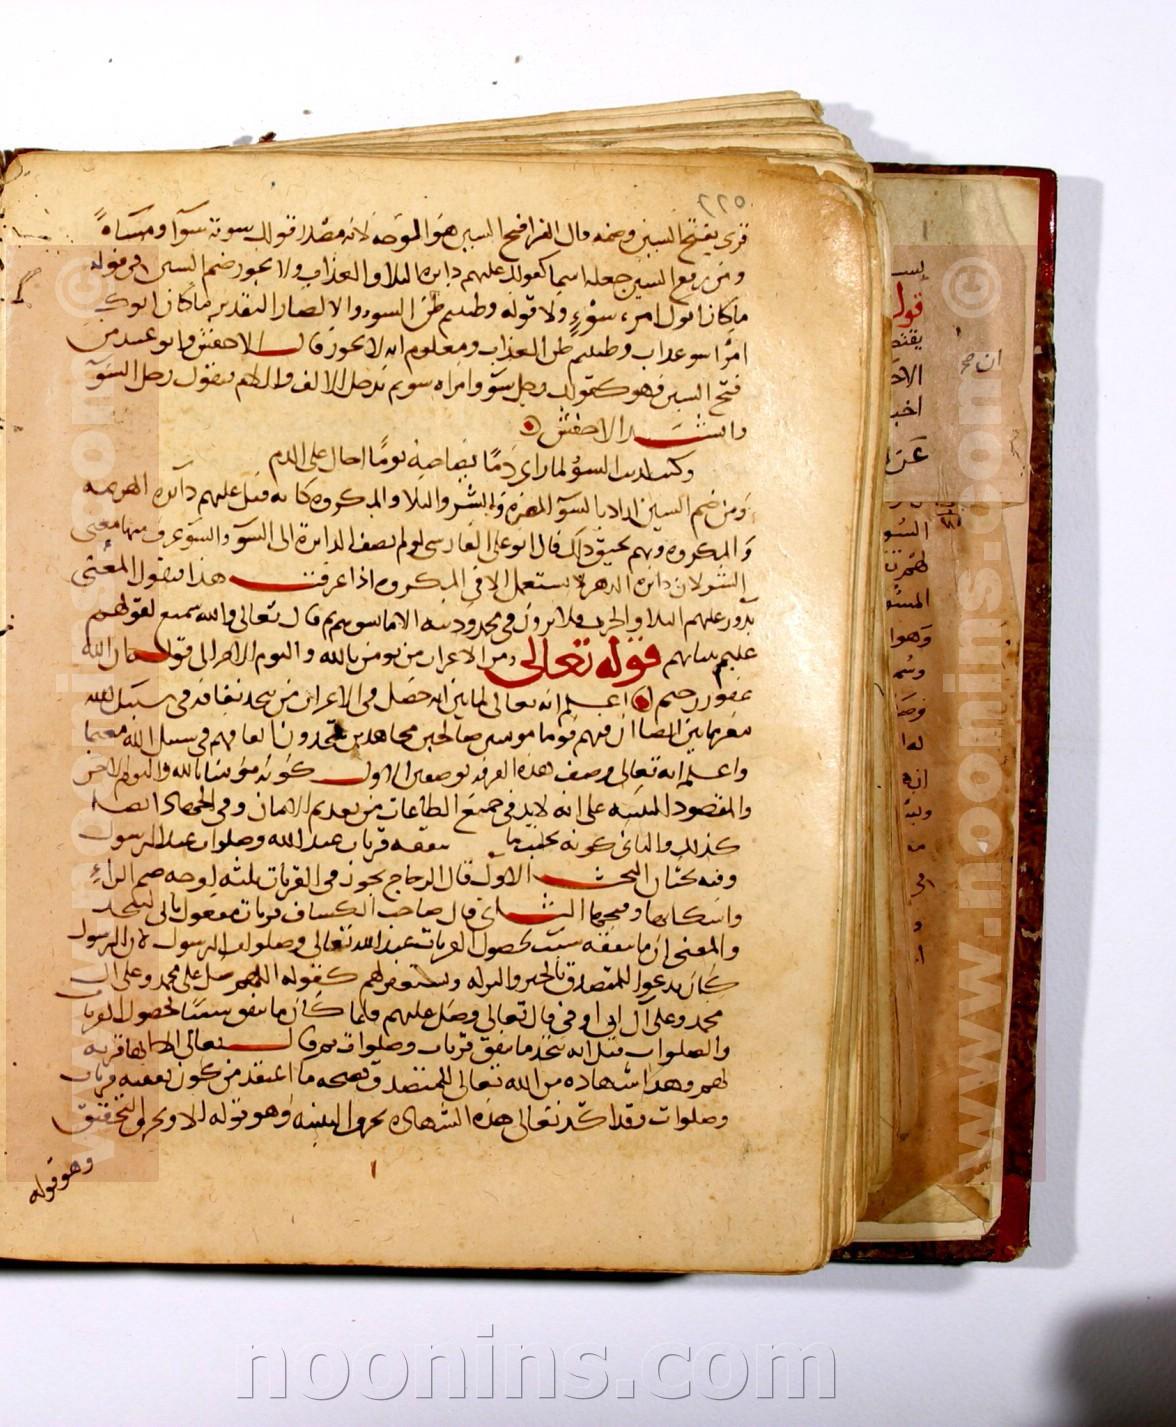 ٢٢٥
قرئ بفتح السين وضمه قال الفرا فتح السين هو الوجه لانه مصدر قولك سوته سوآ ومساة
ومن رفع السين جعله اسما كقولك عليهم دايره البلا والعذاب ولا يجوز ضم السين في قوله
ما كان ابوك امرء سوء ولا قوله وظننتم ظن السوء والا لصار التقدير ما كان ابوك
امرا سو عذاب وظننتم ظن العذاب ومعلوم انه لا يجوز قال الاخفش وابو عبيد من
فتح السين فهو كقولك رجل سو وامراه سو ثم يدخل الالف واللام فيقول رجل السوء
وانشد الاخفش
وكنت كذيب السوء لما راى دما بصاحبه يوما احال على الدم
ومن ضم السين اراد بالسوء المضرة والشر والبلا والمكروه كانه قيل عليهم دايره الهزيمه
والمكروه وبهم يحيق ذلك قال ابو علي الفارسي لو لم تضف الدايرة الى السوء والسوء عرف منها معنى
السوء لان دايره الدهر لا يستعمل الا في المكروه اذا عرفت هذا فنقول المعنى
يدور عليهم البلا والحزن فلا يرون في محمد ودينه الا ما يسوهم ثم قال تعالى والله سميع لقولهم
عليم بنياتهم قوله تعالى ومن الاعراب من يومن بالله واليوم الاخر الى قوله ان الله
غفور رحيم اعلم انه تعالى لما بين انه حصل في الاعراب من يتخذ انفاقه في سبيل الله
مغرما بين ايضا ان فيهم قوما مومنين صالحين مجاهدين يتخذون انفاقهم في سبيل الله مغنما
واعلم انه تعالى وصف هذه الفرقه بوصفين الاول كونه مومنا بالله واليوم الاخر
والمقصود التنبيه على انه لا بد في جميع الطاعات من تقديم الايمان وفي الجهاد ايضا
كذلك والثاني كونه بحيث ما ينفقه قربات عند الله وصلوات عند الرسول
وفيه بحثان البحث الاول قال الزجاج يجوز في القربات ثلثه اوجه ضم الراء
واسكانها وفتحها الثاني قال صاحب الكشاف قربات مفعول ثاني ليتخذ
والمعنى ان ما ينفقه سبب لحصول القربات عند الله تعالى وصلوات الرسول لان الرسول
كان يدعوا للمتصدقين بالخير والبركه ويستغفر لهم كقوله اللهم صل على محمد وعلى ال
محمد وعلى آل ابي اوفى قال تعالى وصل عليهم فلما كان ما ينفق سببا لحصول القربات
والصلوات قيل انه يتخذ ما ينفق قربات وصلوات ثم قال تعالى الا انها قربه
لهم وهذا شهاده من الله تعالى للمتصدق بصحه ما اعتقد من كون نفقته قربات
وصلوات وقد اكد تعالى هذه الشهاده بحرف التنبيه وهو قوله الا وبحرف التحقيق
وهو قوله
noonins.com
www.noonins.com ©
www.noonins.com ©